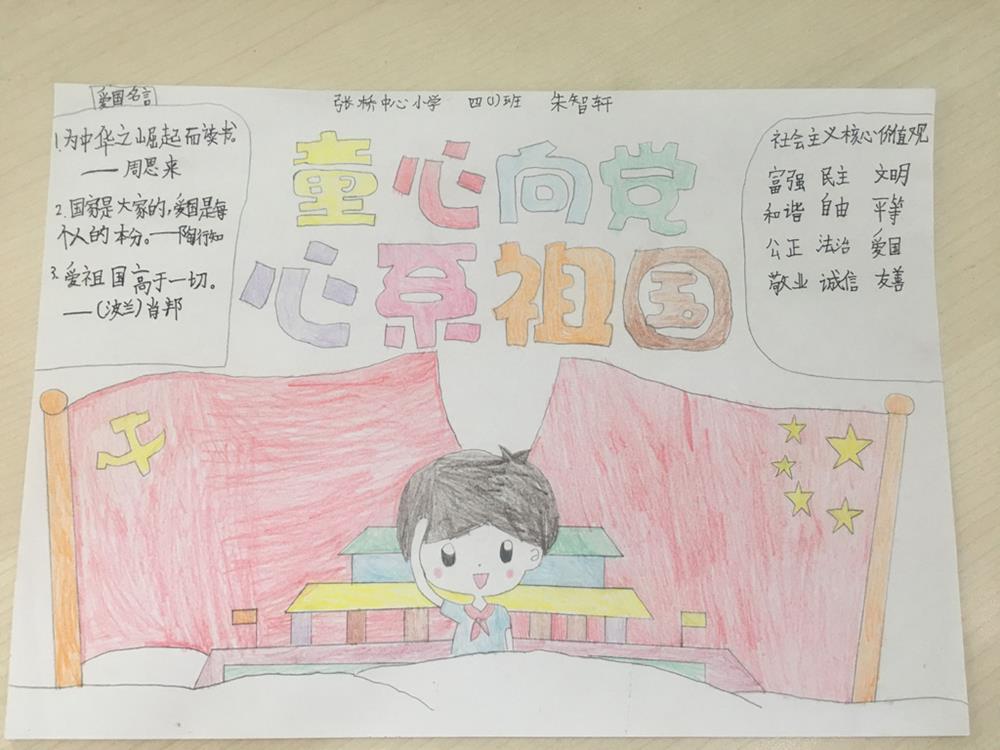 爱国名言
张桥中心小学 四(1)班 朱智轩
1.为中华之崛起而读书。
——周恩来
2.国家是大家的,爱国是每
个人的本分。——陶行知
3.爱祖国高于一切。
——(波兰)肖邦
童心向党
心系祖国
社会主义核心价值观
富强 民主 文明
和谐 自由 平等
公正 法治 爱国
敬业 诚信 友善